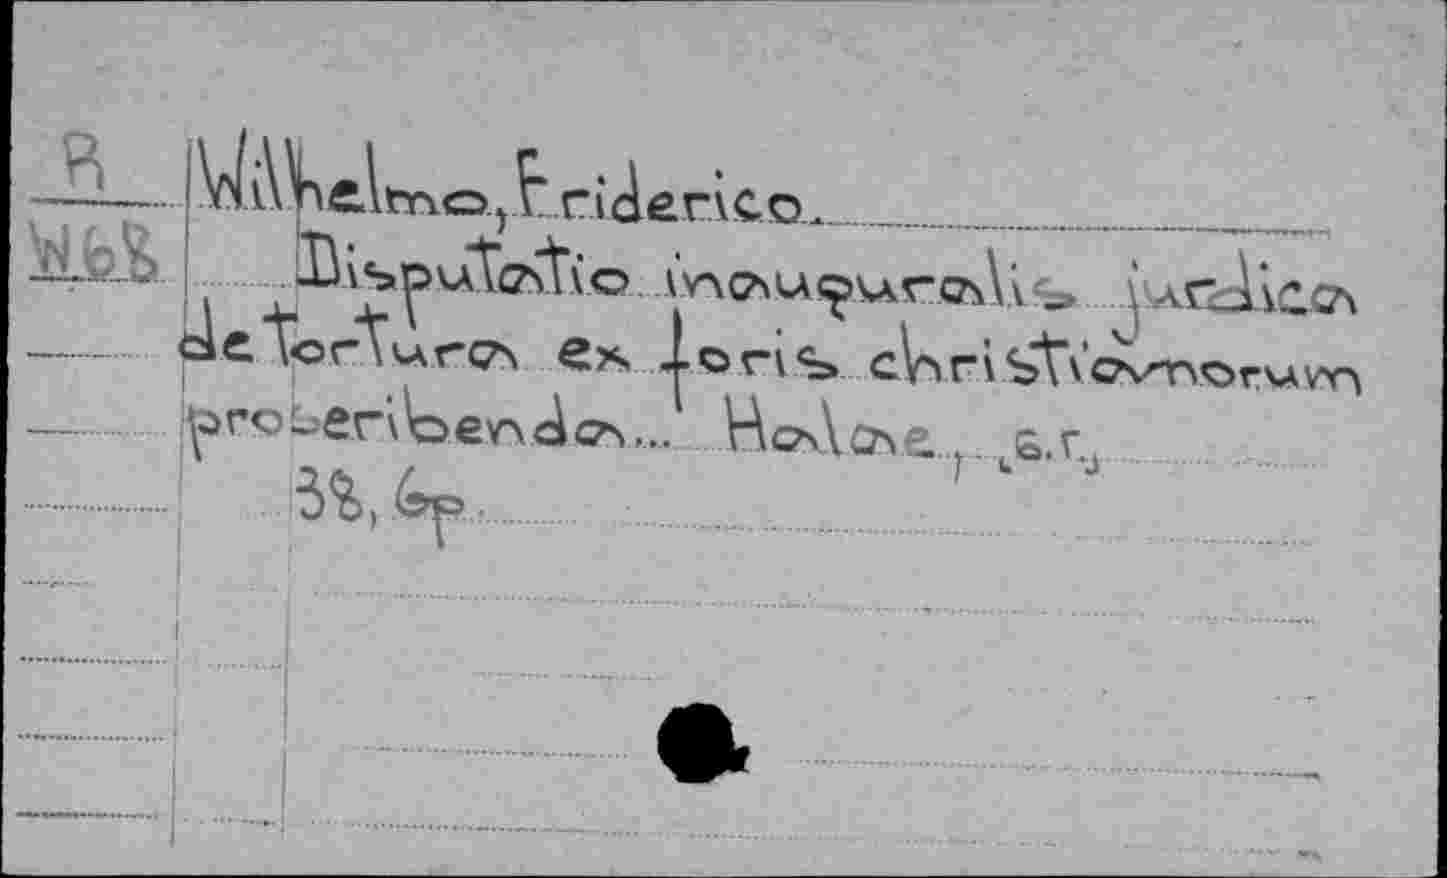 R Wilhelmo, Friderico.
W68 Disputatio inauguralis juridica
de tortura ex foris christianorum
proscribenda... Halae, [s.r.]
38, 6p.